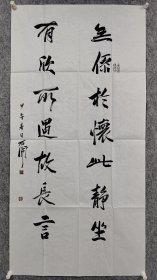 無係於懷此靜坐
有欣所遇故長言
甲午春日